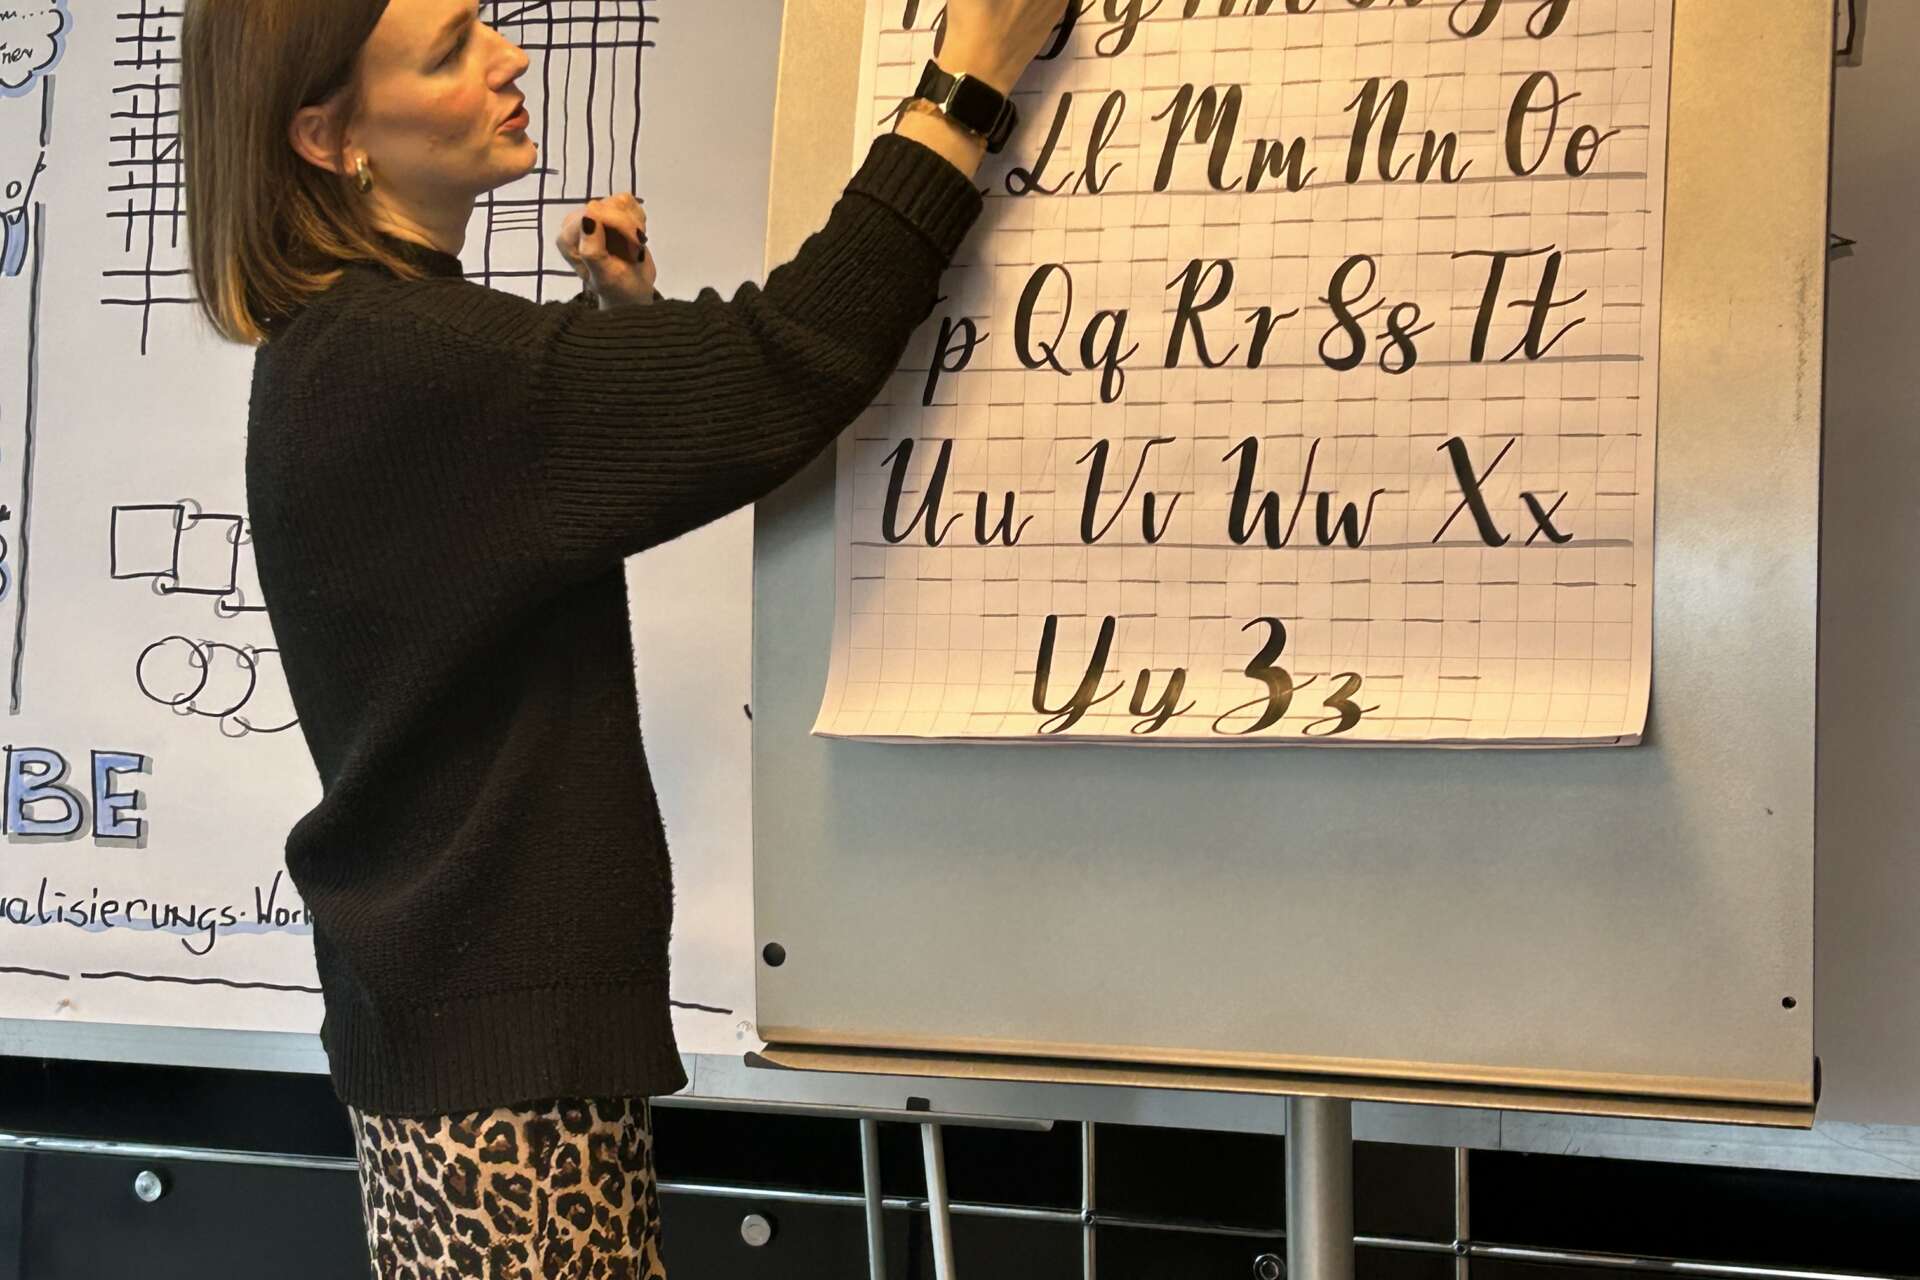 Ll Mm Nn Oo
p Qq Rr Ss Tt
Uu Vv Ww Xx
Yy Zz
BE
alisierungs-Work